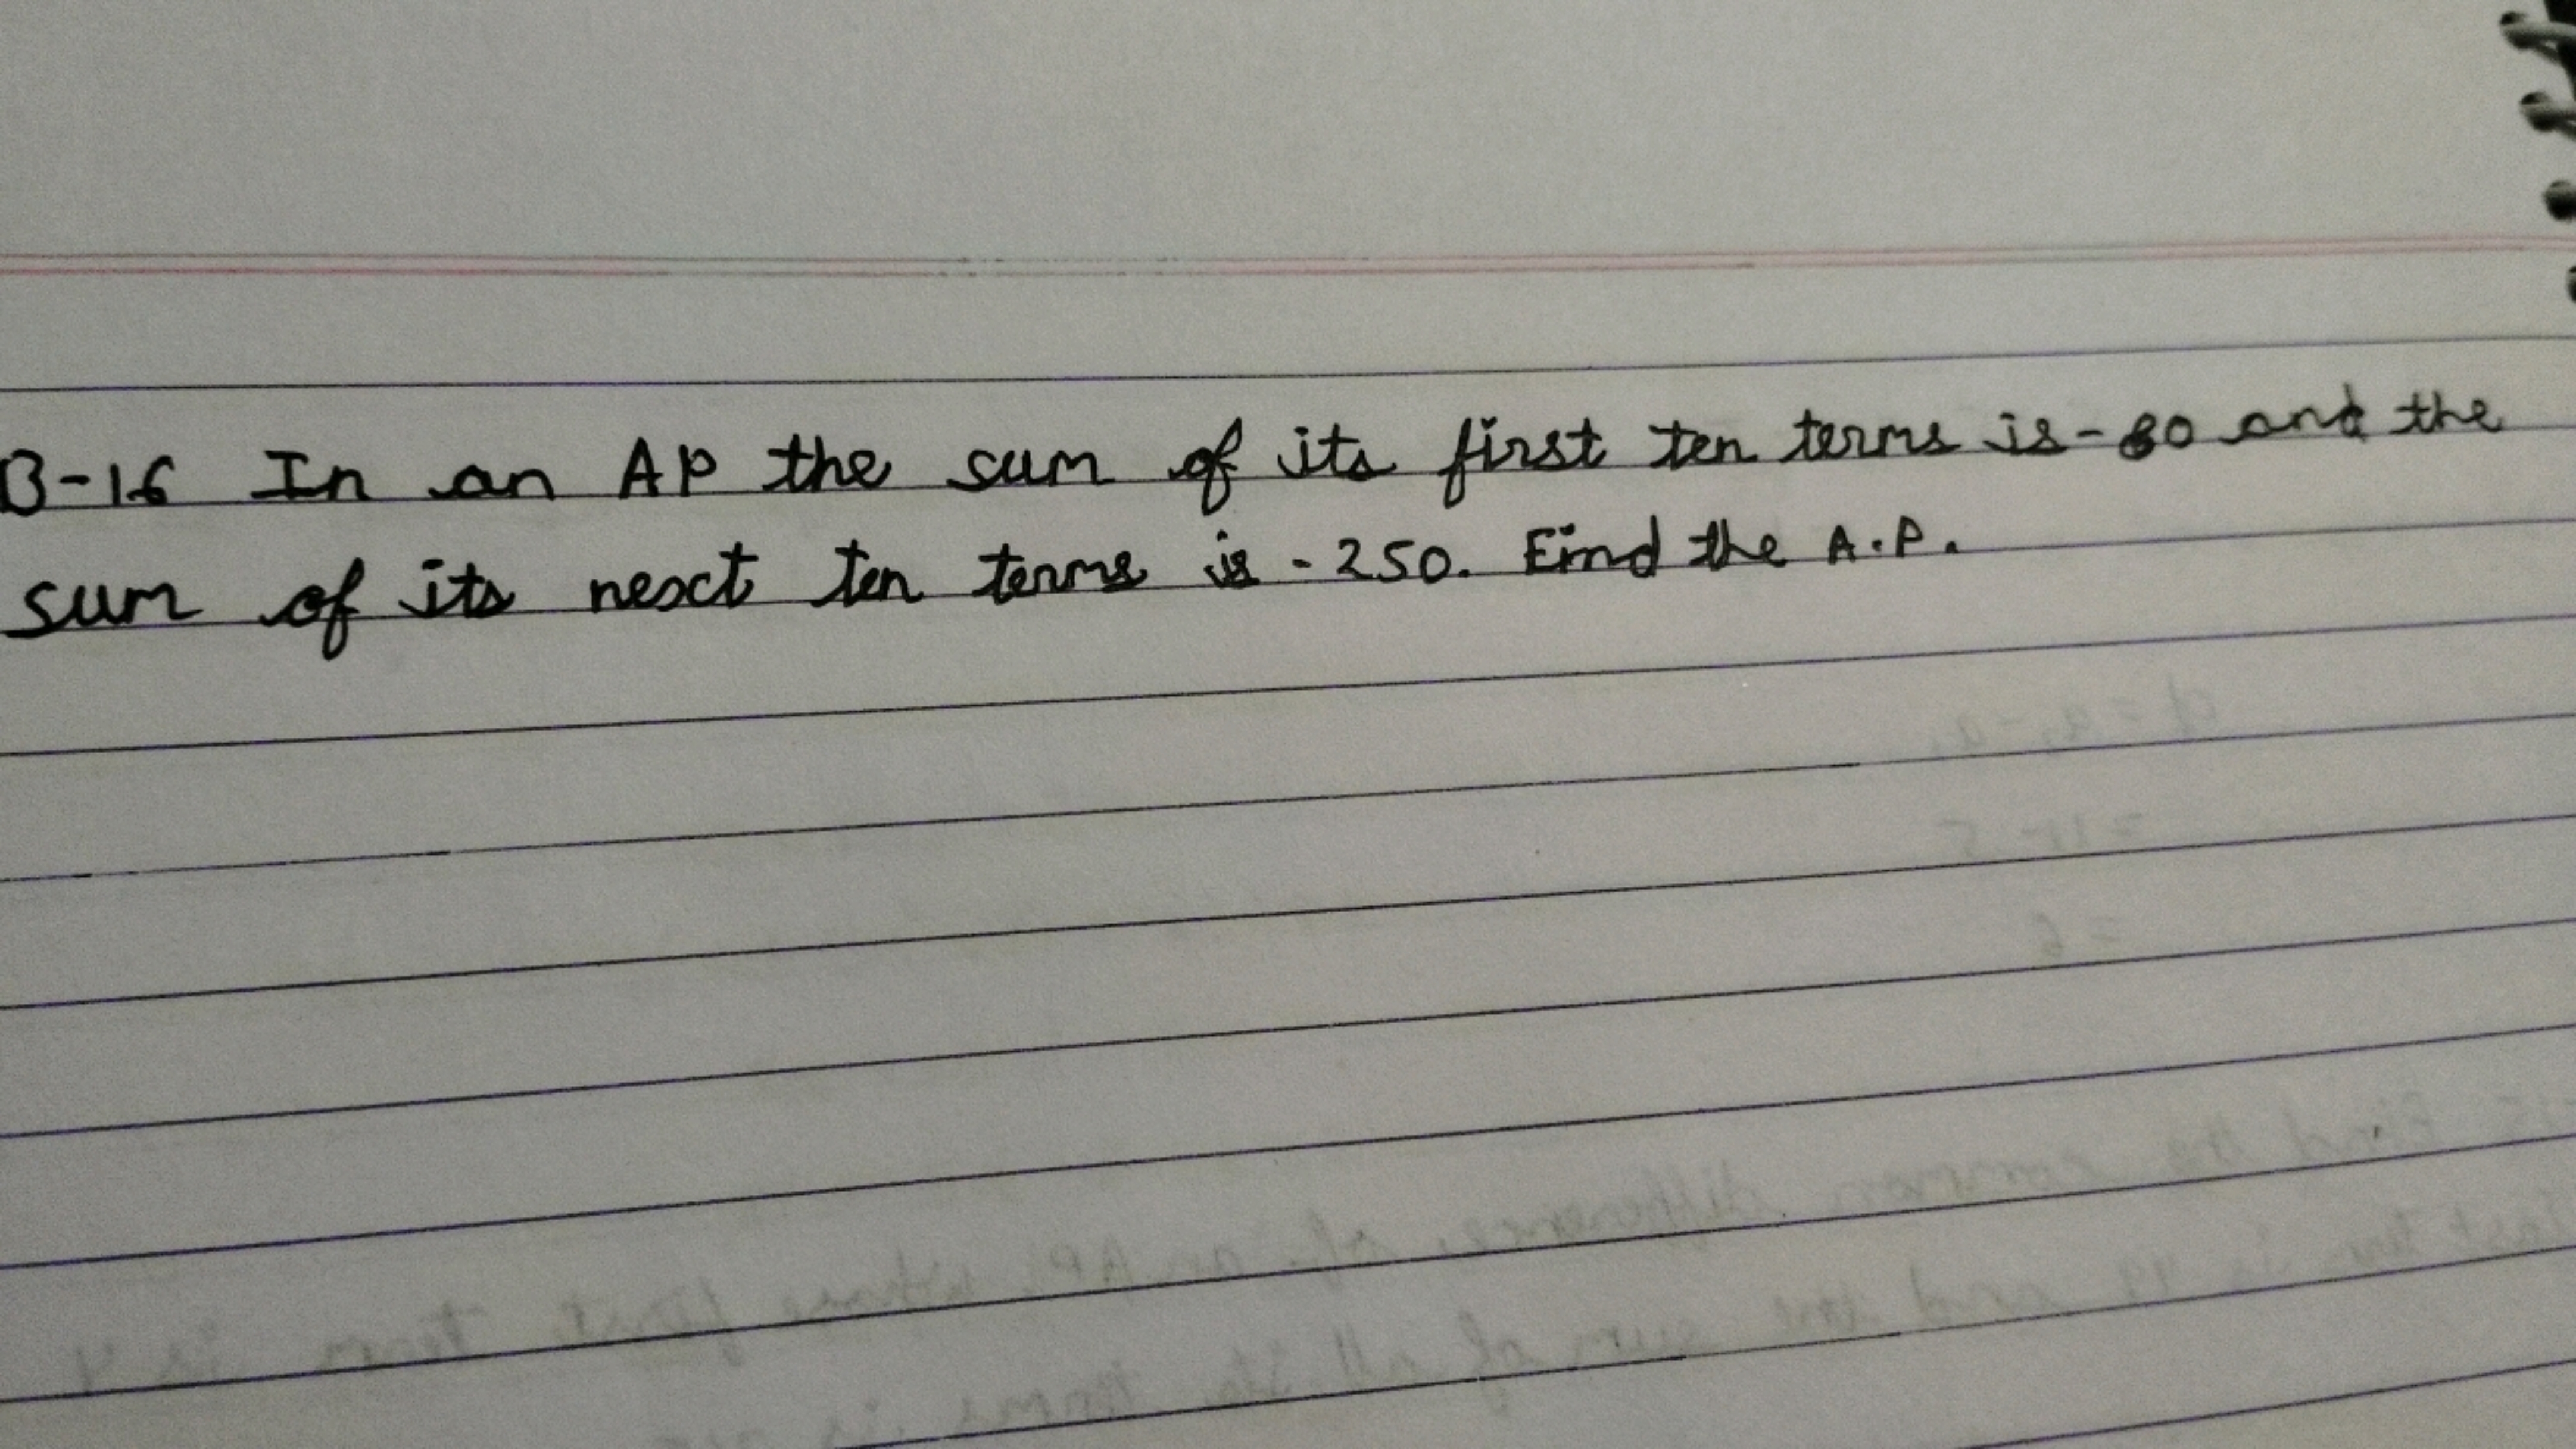 B-16 In an AP the sum of its first ten terms is -80 and the
sum of its next ten terms is -250. Find the A.P.